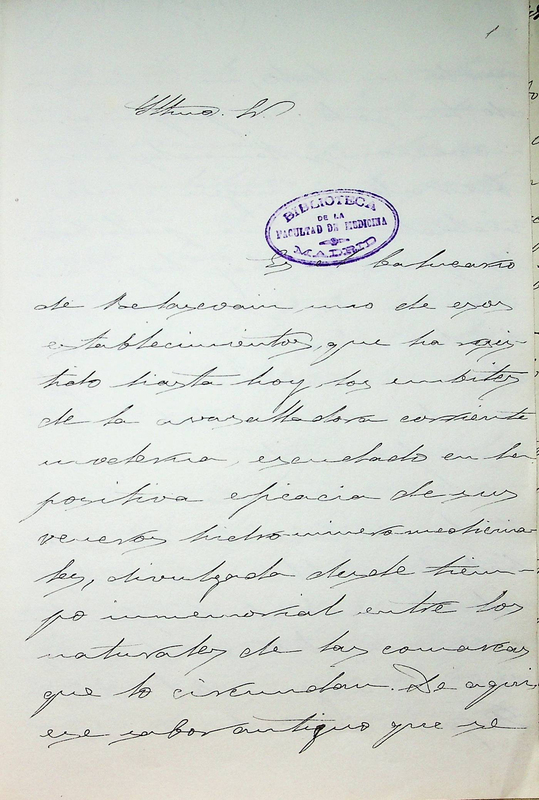 1
Iltmo. Sr.
BIBLIOTECA
DE LA
FACULTAD DE MEDICINA
MADRID
Es el balneario
de Belascoain uno de esos
establecimientos, que ha resis-
tido hasta hoy los embites
de la avasalladora corriente
moderna, escudado en la
positiva eficacia de sus
veneros hidro-minero-medicina-
les, divulgada desde tiem-
po inmemorial entre los
naturales de las comarcas
que lo circundan. De aqui
ese sabor antiguo que se